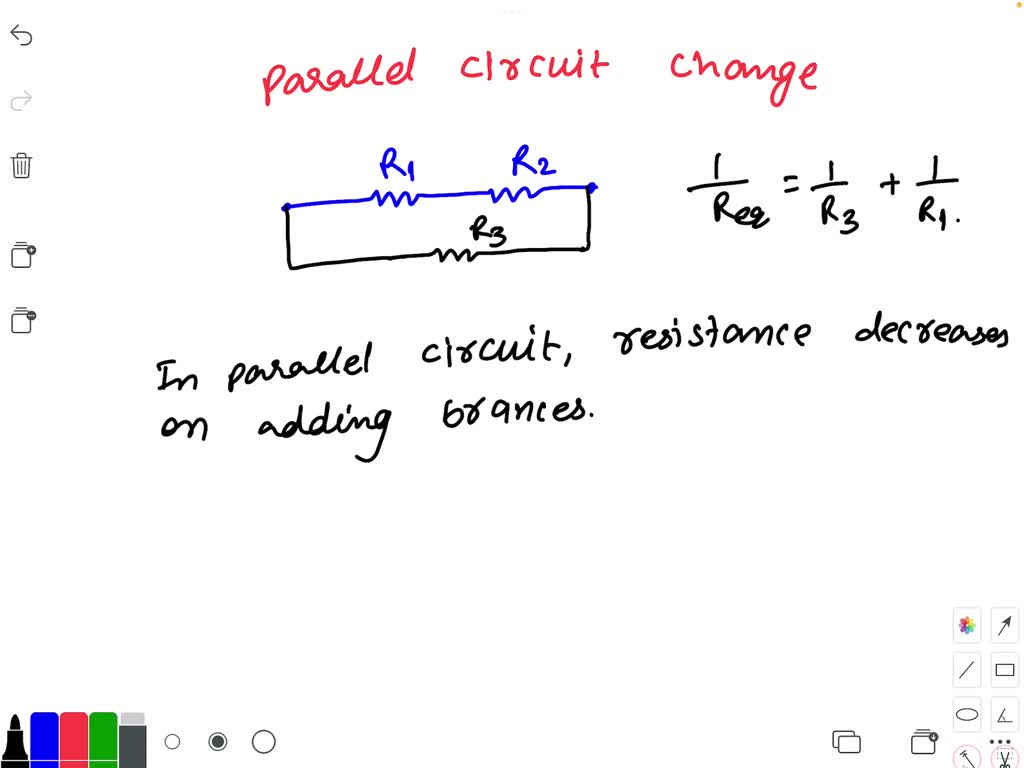 parallel circuit change
R1 R2
R3
1/Req = 1/R3 + 1/R1.
In parallel circuit, resistance decreases
on adding brances.